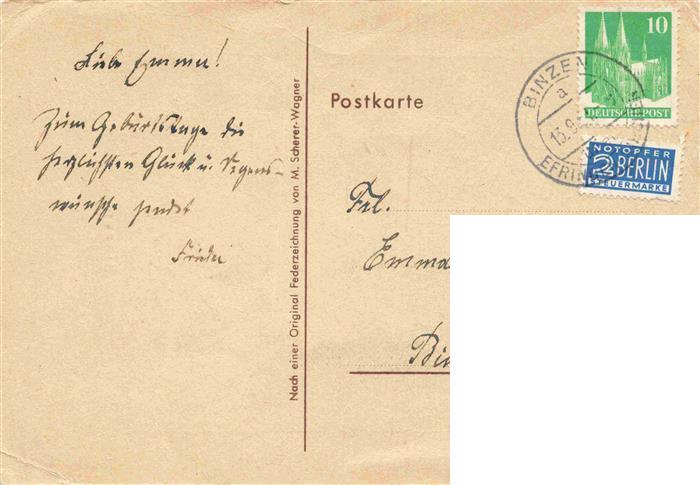 Liebe Emma!
Zum Geburtstage die
herzlichsten Glück u. Segens-
wünsche sendet
Frieda
Nach einer Original Federzeichnung von M. Scherer-Wagner
Postkarte
10
DEUTSCHE POST
BINZEN
a
13.9.
EFRIN
NOTOPFER
2 BERLIN
STEUERMARKE
Frl.
Emma
Bin